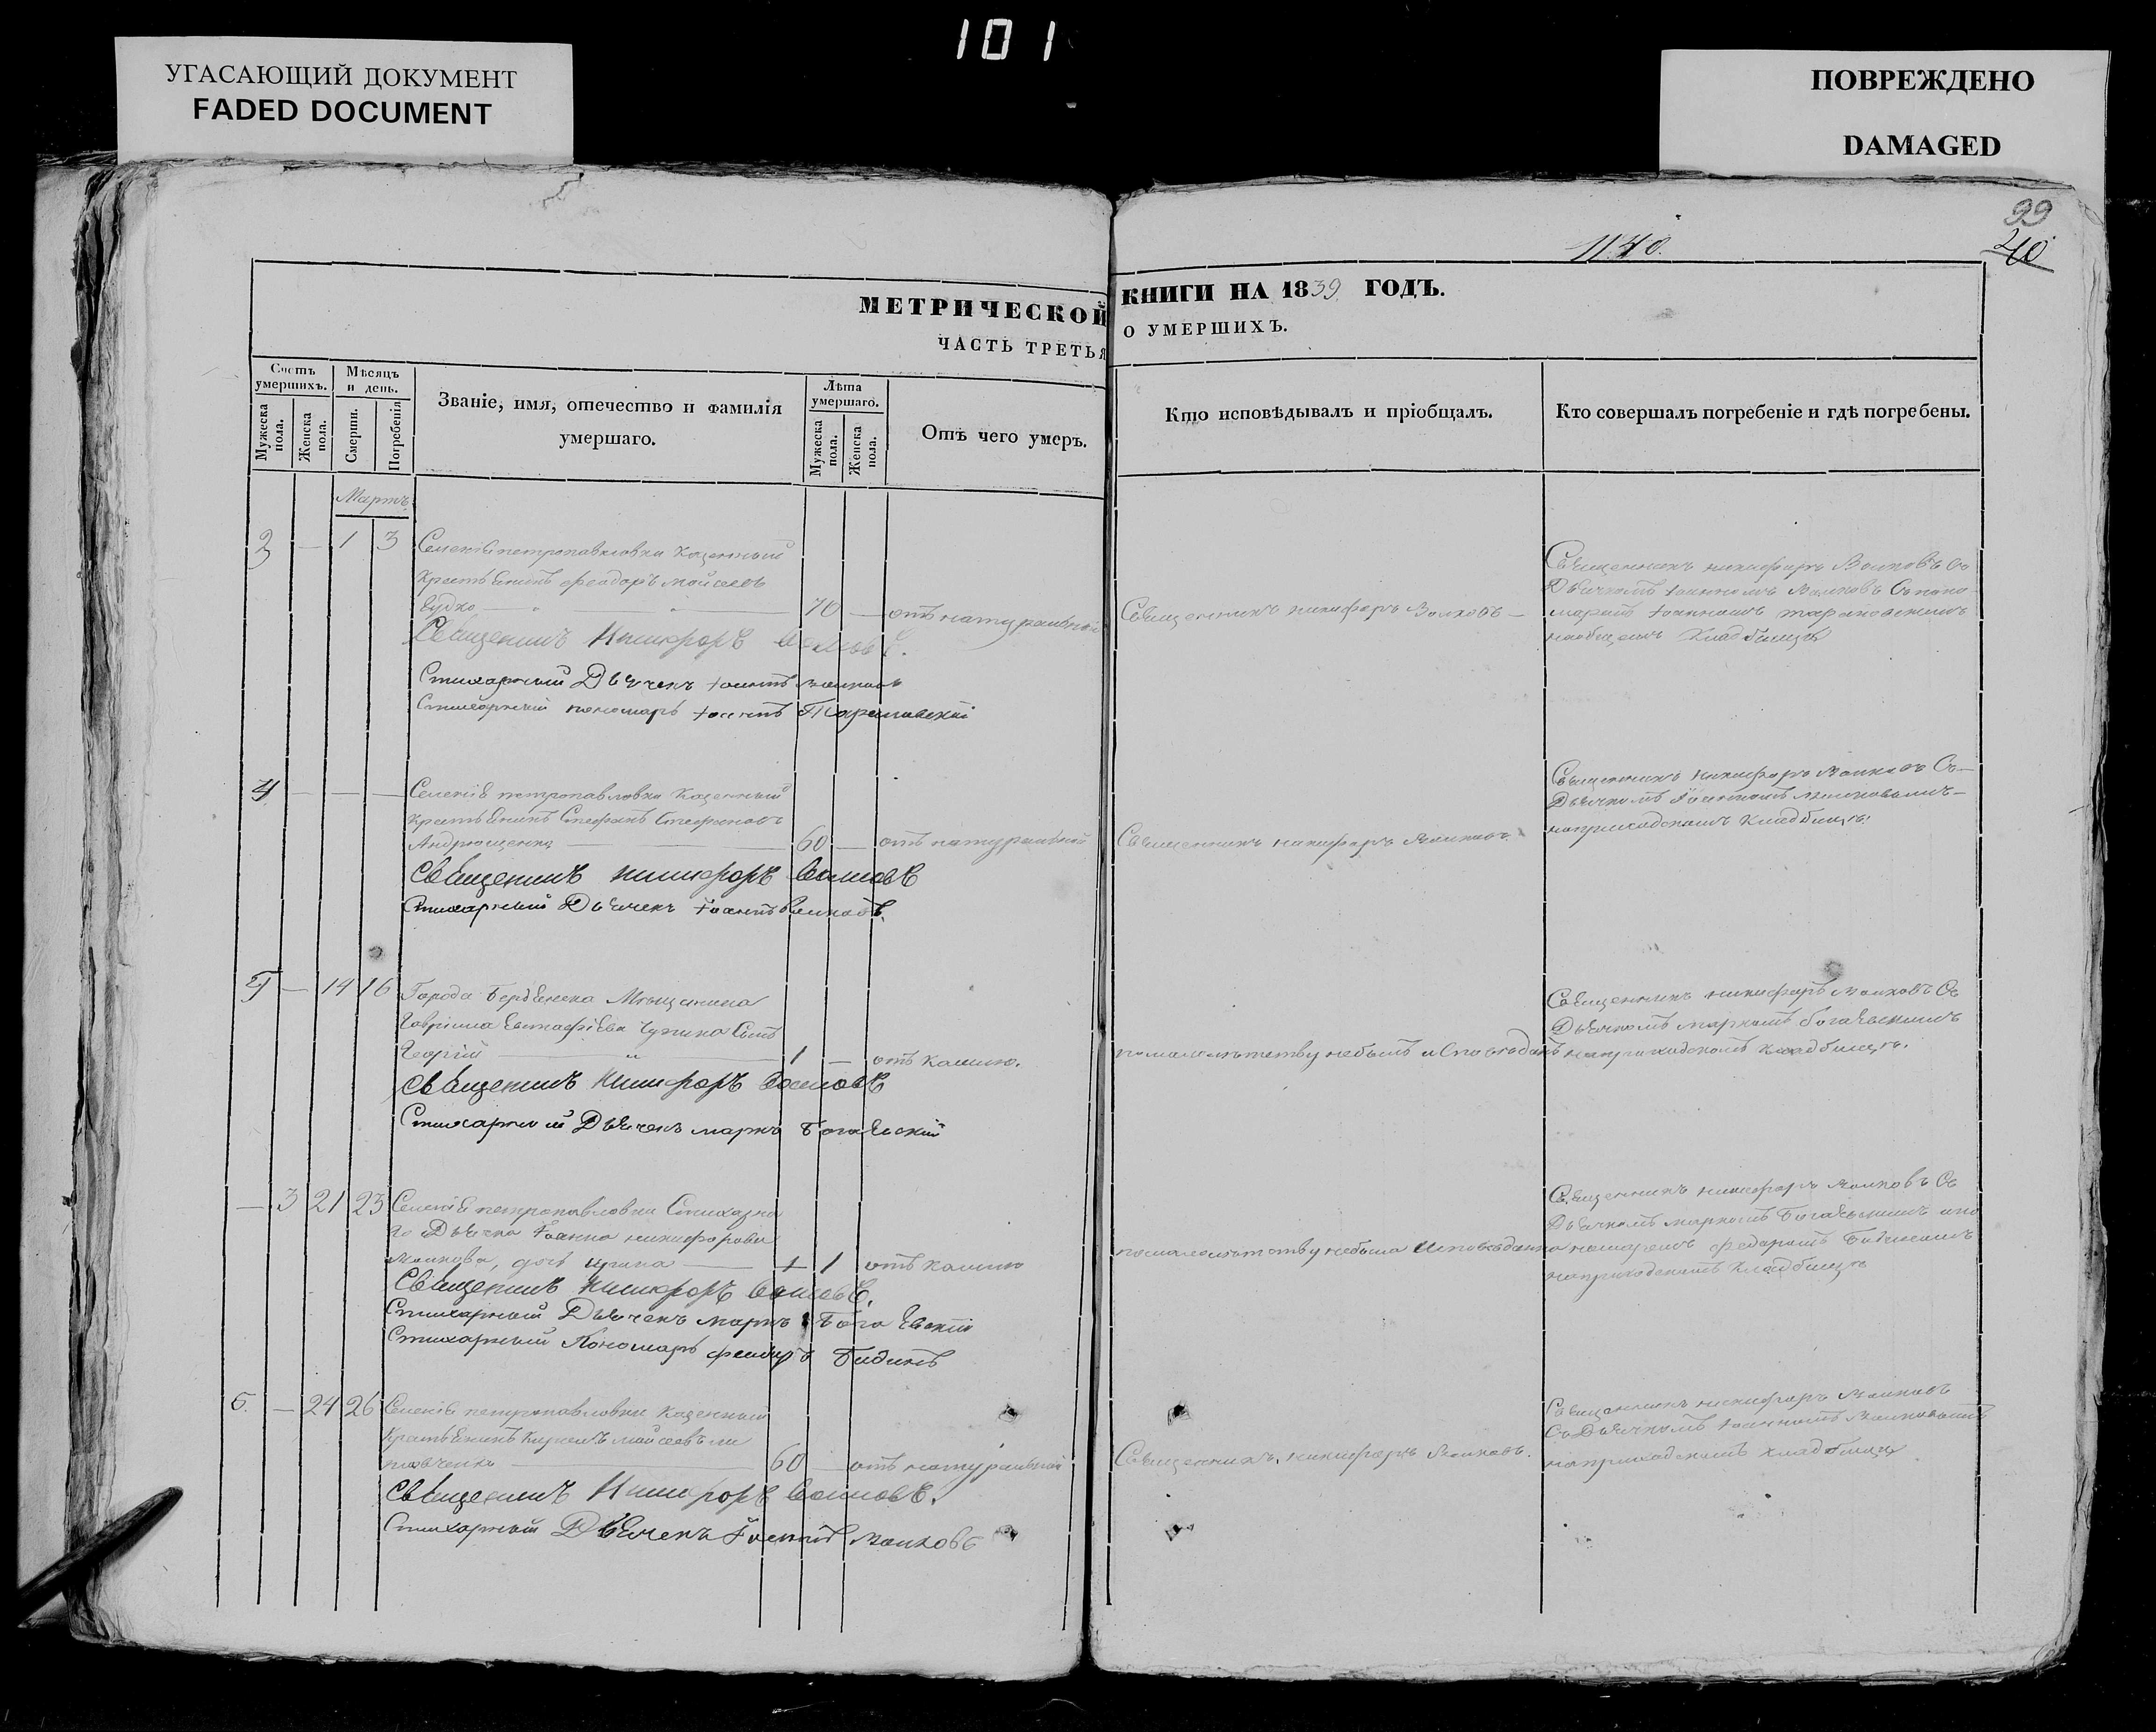 101
УГАСАЮЩИЙ ДОКУМЕНТ
FADED DOCUMENT
ПОВРЕЖДЕНО
DAMAGED
99
40
1140.
МЕТРИЧЕСКОЙ КНИГИ НА 1839 ГОДЪ.
ЧАСТЬ ТРЕТЬЯ О УМЕРШИХЪ.
Счетъ умершихъ.
Мужеска пола.
Женска пола.
Мѣсяцъ и день.
Смерти.
Погребенія
Званіе, имя, отечество и фамилія
умершаго.
Лѣта умершаго.
Мужеска пола.
Женска пола.
Отъ чего умеръ.
Кто исповѣдывалъ и пріобщалъ.
Кто совершалъ погребеніе и гдѣ погребены.
Мартъ
3 — 1 3 Селенія петропавловки Казенный
Крестьянинъ Феодоръ мойсеевъ
70 — отъ натуральной
Священникъ никифоръ Волковъ —
Священникъ никифоръ Волковъ Съ
Дьячкомъ Іоанномъ Волковъ Съ поно
маремъ Іоанномъ
наобщемъ Кладбищѣ
Священникъ Никифоръ Волковъ.
Стихарный Дьячекъ Іоаннъ Волковъ
Стихарный пономарь Іоаннъ
4 — — — Селенія петропавловки Казенный
крестьянинъ Стефанъ Стефановъ
Андрющенко — 60 — отъ натуральной
Священникъ никифоръ Волковъ.
Священникъ никифоръ Волковъ Съ
Дьячкомъ Іоанномъ Волковымъ
наприходскомъ Кладбищѣ.
Священникъ никифоръ Волковъ
Стихарный Дьячекъ Іоаннъ Волковъ.
5 — 14 16 Города Бердянска Мѣщанина
Гавріила Евстафіева Сынъ
Георгій — 1 — отъ кашлю.
помалолѣтству небылъ исповѣданъ
Священникъ никифоръ Волковъ Съ
Дьячкомъ маркомъ богаевскимъ
наприходскомъ кладбищѣ.
Священникъ Никифоръ Волковъ
Стихарный Дьячекъ маркъ Богаевскій
— 3 21 23 Селенія петропавловки Стихарна
го Дьячка Іоанна никифорова
Волкова, дочь ирина — 1 отъ кашлю
помалолѣтству небыла исповѣдана
Священникъ никифоръ Волковъ Съ
Дьячкомъ маркомъ Богаевскимъ ипо
номаремъ федоромъ
наприходскомъ Кладбищѣ
Священникъ Никифоръ Волковъ.
Стихарный Дьячекъ маркъ Богаевскій
Стихарный Пономарь феодоръ
6. — 24 26 Селенія петропавловки Казенный
Крестьянинъ мойсеевъ
60 — отъ натуральной
Священникъ никифоръ Волковъ.
Священникъ никифоръ Волковъ
Съ Дьячкомъ Іоанномъ Волковымъ
наприходскомъ кладбищѣ
Священникъ Никифоръ Волковъ.
Стихарный Дьячекъ Іоаннъ Волковъ